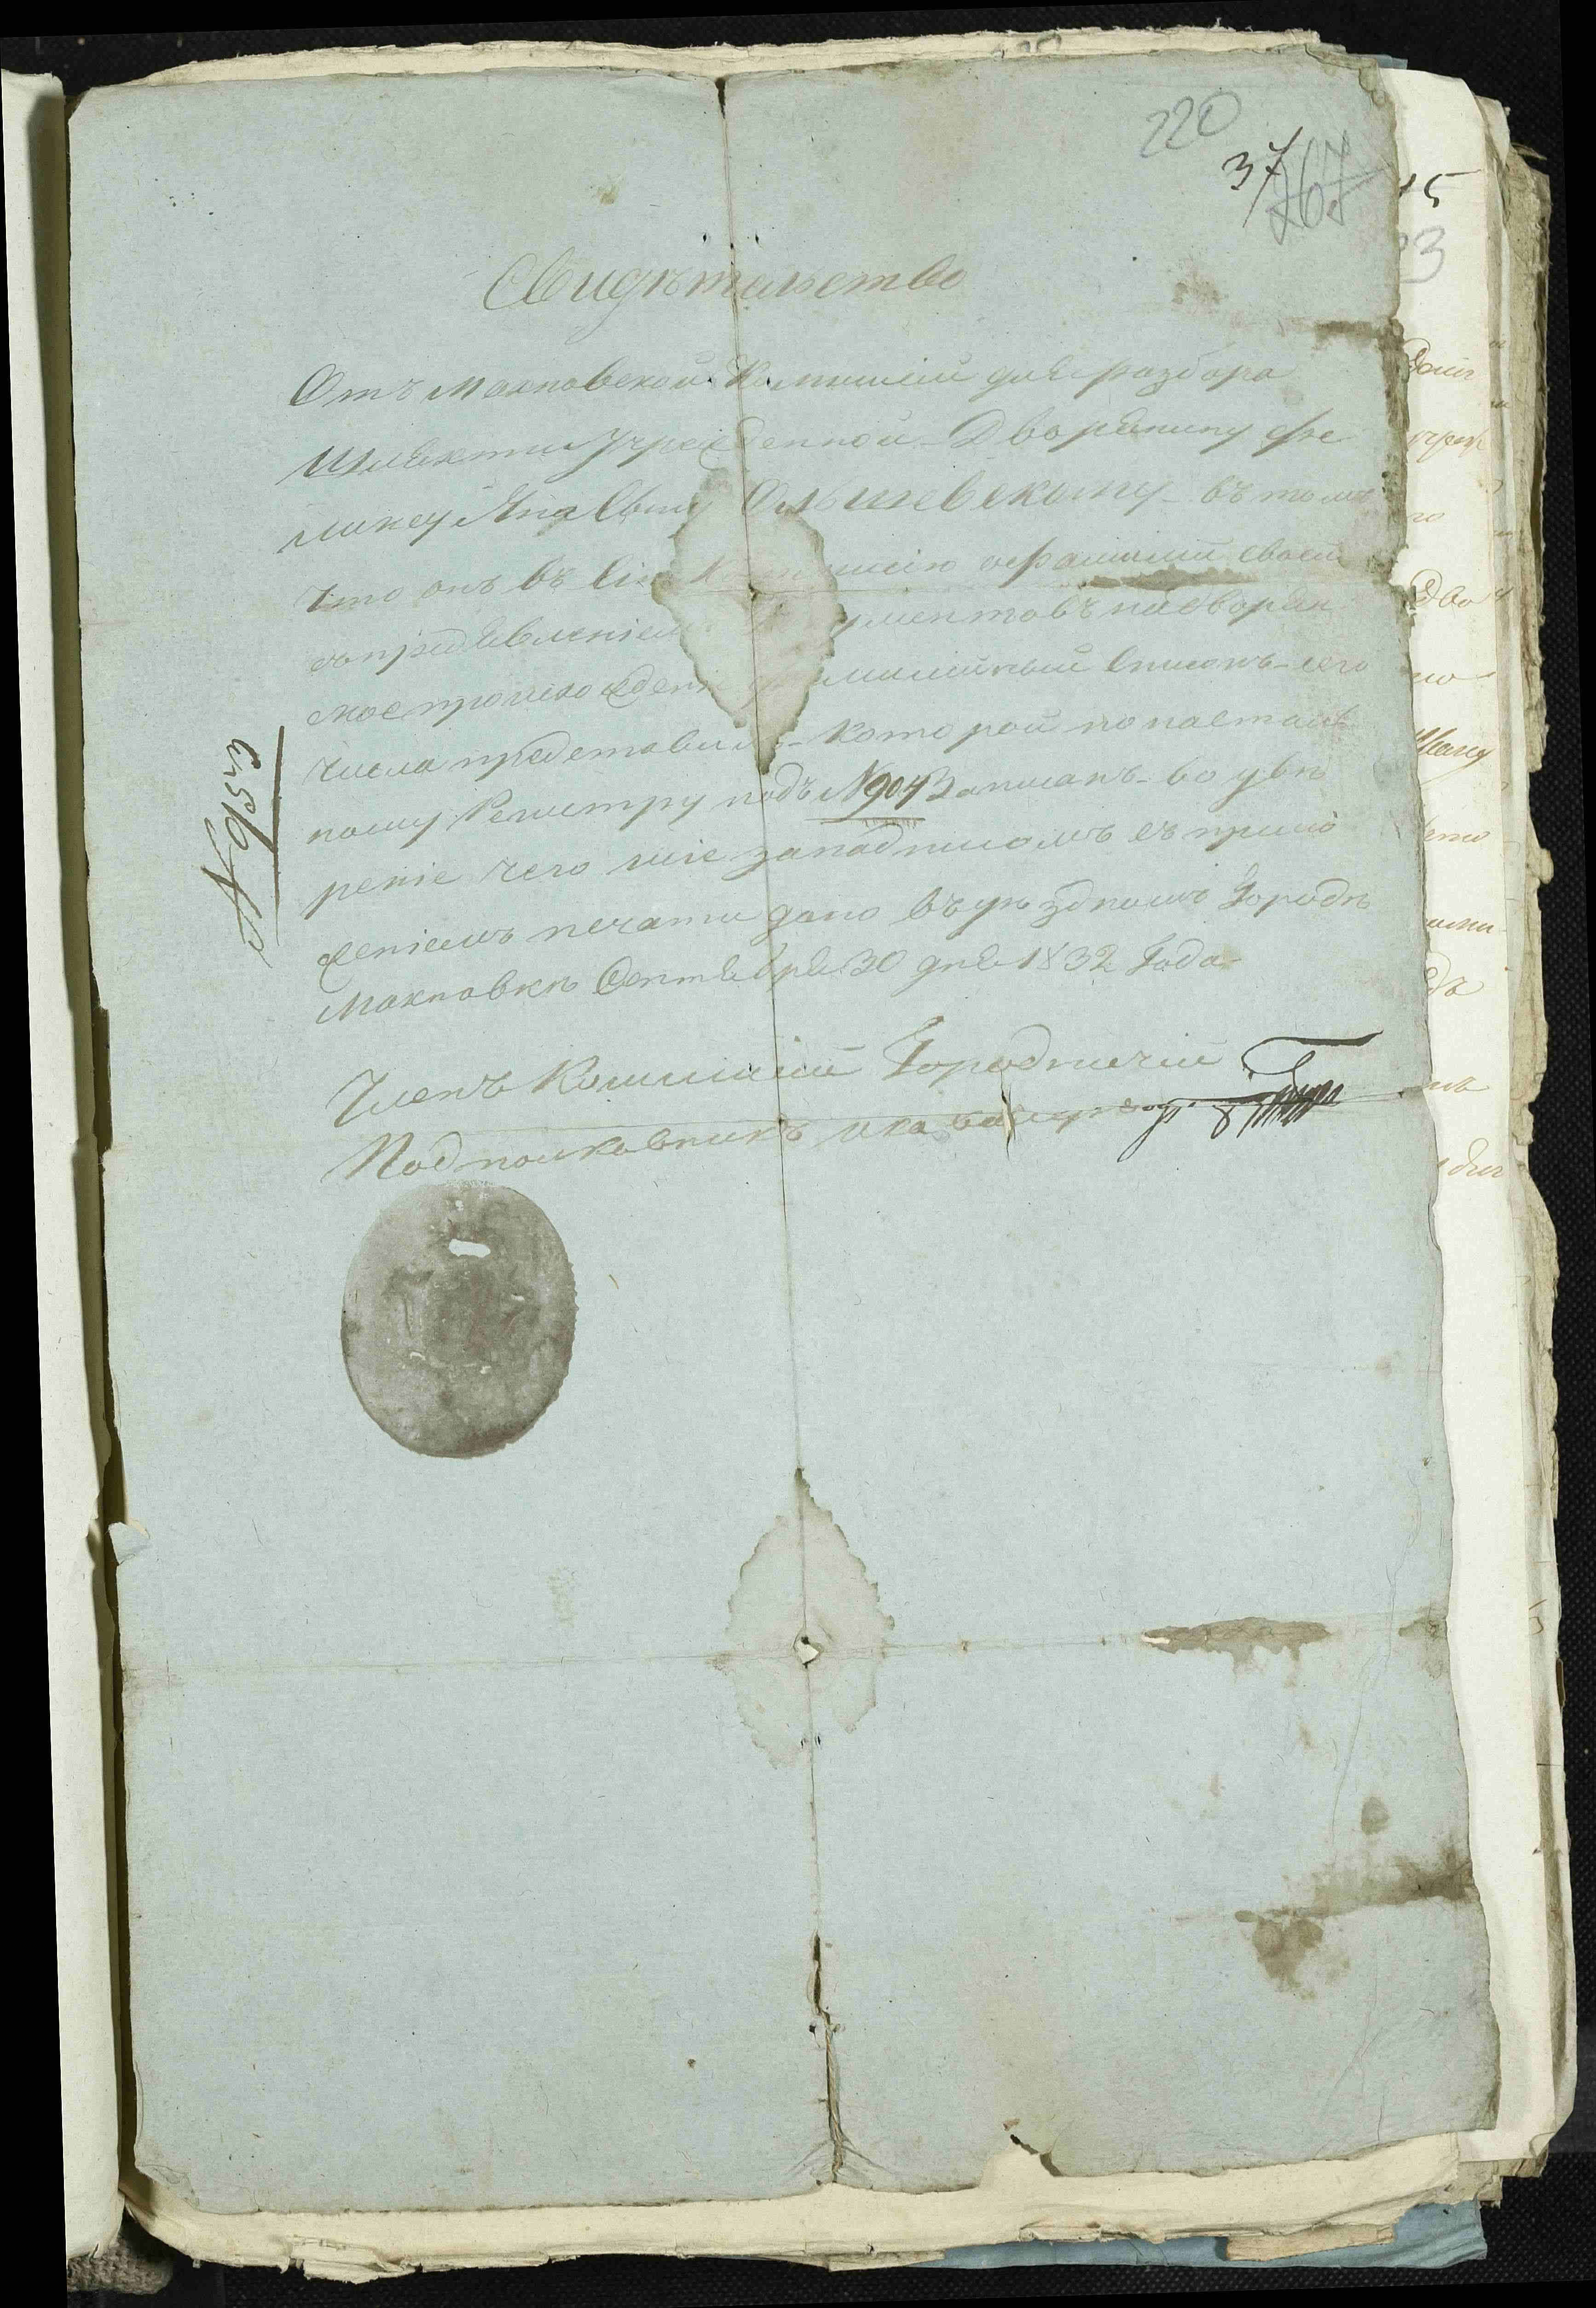 220
37
267
Свидѣтельство
Отъ Махновской Коммиссіи для разбора
Шляхты Учрежденной Дворянину Фе
ликсу Ольшевскому въ томъ
Что онъ въ Сію Коммиссію о фамиліи своей
съ предъявленіем ументовъ на дворян
ское происхожден милійный Списокъ сего
числа представилъ который по настоль
ному Регистру подъ №904 Записанъ во увѣ
реніе чего сіе за подписомъ съ прило
женіемъ печати дано въ уѣздномъ Городѣ
Махновкѣ Сентября 30 дня 1832 Года
Членъ Коммиссіи Городничій
Подполковникъ и кавалеръ